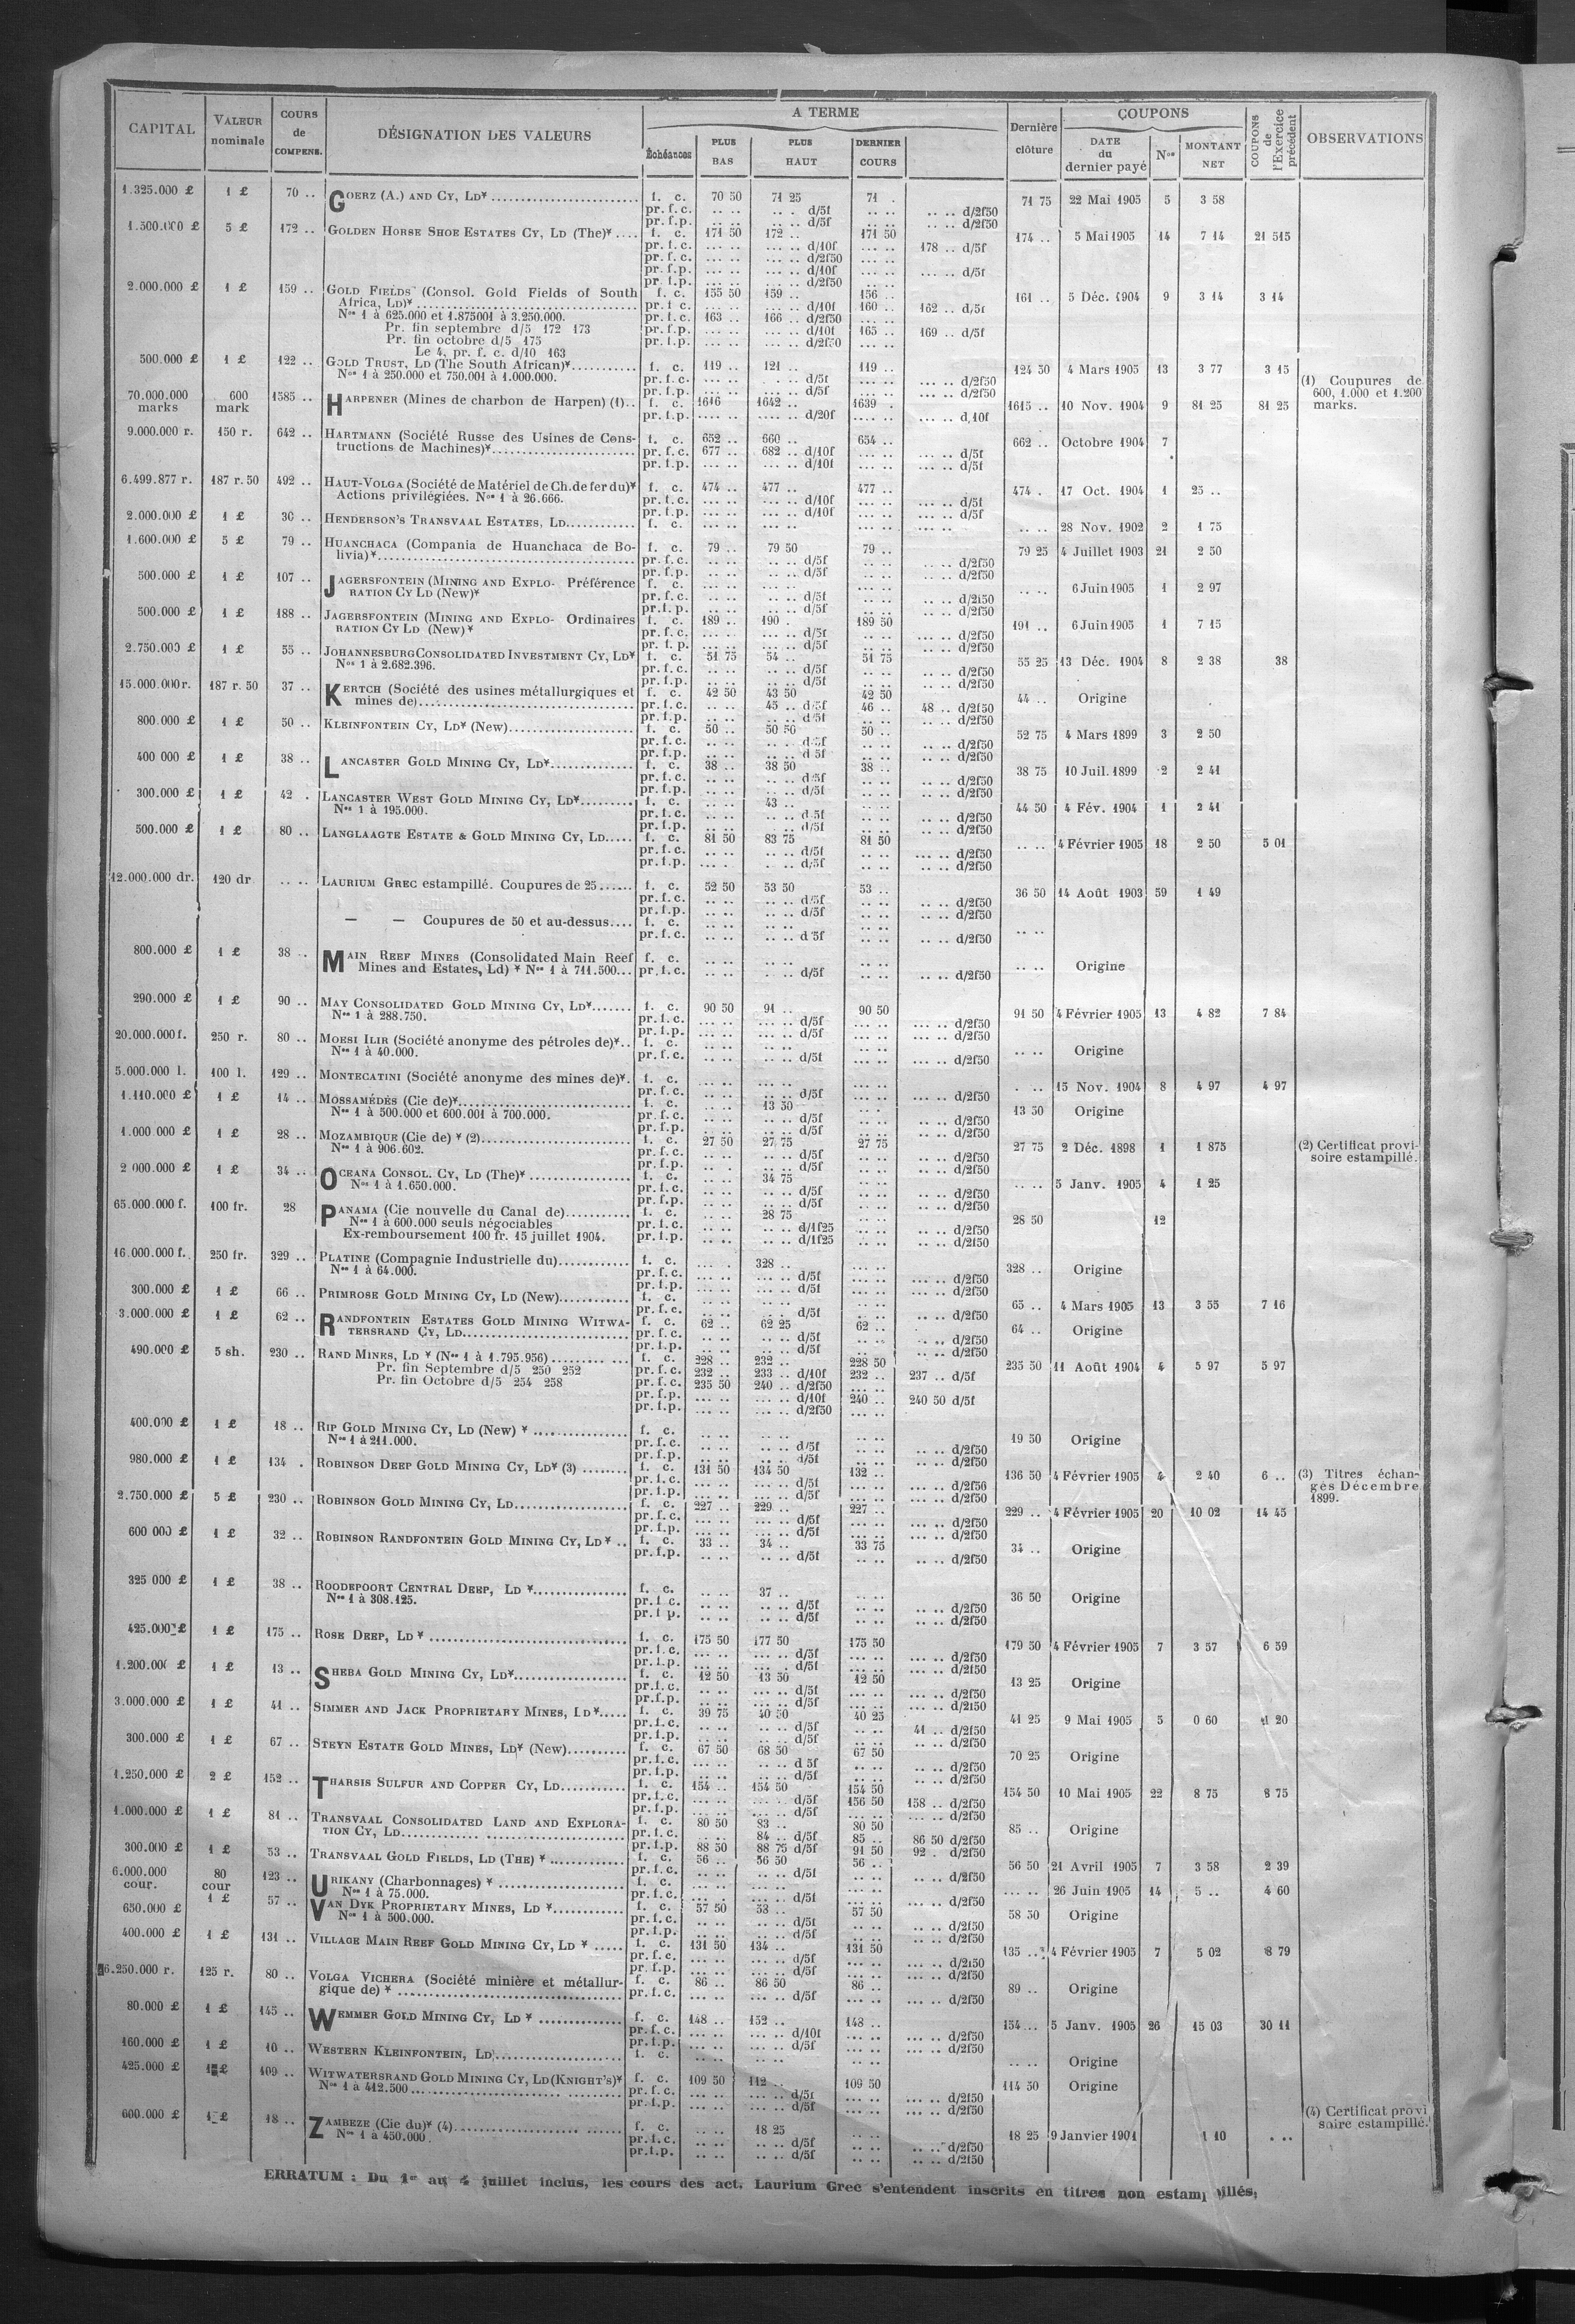 CAPITAL VALEUR nominale COURS de COMPENS. DÉSIGNATION DES VALEURS A TERME Dernière clôture COUPONS COUPONS de l'Exercice précédent OBSERVATIONS
Échéances PLUS BAS PLUS HAUT DERNIER COURS DATE du dernier payé Nos MONTANT NET
1.325.000 £ 1 £ 70 .. GOERZ (A.) AND CY, LD* f. c. 70 50 71 25 71 . 71 75 22 Mai 1905 5 3 58
pr. f. c. .. .. .. . d/5f .. .. .. .. d/2f50
pr. f. p. .. .. .. .. d/5f .. .. .. .. d/2f50
1.500.000 £ 5 £ 172 .. GOLDEN HORSE SHOE ESTATES CY, LD (The)* .... f. c. 171 50 172 .. 171 50 174 .. 5 Mai 1905 14 7 14 21 515
pr. f. c. .... .. .... .. d/10f .... .. 178 .. d/5f
pr. f. c. .... .. .... .. d/2f50 .... ..
pr. f. p. .... .. .... .. d/10f .... .. .... .. d/5f
pr. f. p. .... .. .... .. d/2f50 .... ..
2.000.000 £ 1 £ 159 .. GOLD FIELDS (Consol. Gold Fields of South f. c. 155 50 159 .. 156 .. 161 .. 5 Déc. 1904 9 3 14 3 14
Africa, LD)* pr. f. c. .... .. .... .. d/10f 160 .. 162 .. d/5f
Nos 1 à 625.000 et 1.875001 à 3.250.000. pr. f. c. 163 .. 166 .. d/2f50 .... ..
Pr. fin septembre d/5 172 173 pr. f. p. .... .. .... .. d/10f 165 .. 169 .. d/5f
Pr. fin octobre d/5 175 pr. f. p. .... .. .... .. d/2f50 .... ..
Le 4, pr. f. c. d/10 163
500.000 £ 1 £ 122 .. GOLD TRUST, LD (The South African)* f. c. 119 .. 121 .. 119 .. 124 50 4 Mars 1905 13 3 77 3 15
Nos 1 à 250.000 et 750.001 à 1.000.000. pr. f. c. .... .. .. d/5f .... .. .... .. d/2f50 (1) Coupures de
pr. f. p. .... .. .... .. d/5f .... .. .... .. d/2f50 600, 1.000 et 1.200
70.000.000 marks 600 mark 1585 .. HARPENER (Mines de charbon de Harpen) (1).. f. c. 1616 1642 .. 1639 . 1615 .. 10 Nov. 1904 9 81 25 81 25 marks.
pr. f. p. .... .. .... .. d/20f .... .. .... .. d/10f
9.000.000 r. 150 r. 642 .. HARTMANN (Société Russe des Usines de Cons- f. c. 652 .. 660 .. 654 .. 662 .. Octobre 1904 7
tructions de Machines)* pr. f. c. 677 .. 682 .. d/10f .... .. .... .. d/5f
pr. f. p. .... .. .... .. d/10f .... .. .... .. d/5f
6.499.877 r. 187 r. 50 492 .. HAUT-VOLGA (Société de Matériel de Ch. de fer du)* f. c. 474 .. 477 .. 477 .. 474 . 17 Oct. 1904 1 25 ..
Actions privilégiées. Nos 1 à 26.666. pr. f. c. .... .. .... .. d/10f .... .. .... .. d/5f
pr. f. p. .... .. .... .. d/10f .... .. .... .. d/5f
2.000.000 £ 1 £ 30 .. HENDERSON'S TRANSVAAL ESTATES, LD f. c. .... .. .... .. .... .. .... .. .. .. 28 Nov. 1902 2 1 75
1.600.000 £ 5 £ 79 .. HUANCHACA (Compania de Huanchaca de Bo- f. c. 79 .. 79 50 79 .. 79 25 4 Juillet 1903 21 2 50
livia)* pr. f. c. .. .. .. .. d/5f .. .. .. .. d/2f50
pr. f. p. .. .. .. .. d/5f .. .. .. .. d/2f50
500.000 £ 1 £ 107 .. JAGERSFONTEIN (MINING AND EXPLO- Préférence f. c. .... .. .... .. .... .. .. .. 6 Juin 1905 1 2 97
RATION CY LD (New)* pr. f. c. .. .. .. .. d/5f .. .. .. .. d/2f50
pr. f. p. .. .. .. .. d/5f .. .. .. .. d/2f50
500.000 £ 1 £ 188 .. JAGERSFONTEIN (MINING AND EXPLO- Ordinaires f. c. 189 .. 190 . 189 50 191 .. 6 Juin 1905 1 7 15
RATION CY LD (New)* pr. f. c. .. .. .... .. d/5f .. .. .. .. d/2f50
pr. f. p. .... .. .... .. d/5f .. .. .. .. d/2f50
2.750.000 £ 1 £ 55 .. JOHANNESBURG CONSOLIDATED INVESTMENT CY, LD* f. c. 51 75 54 .. 51 75 55 25 13 Déc. 1904 8 2 38 38
Nos 1 à 2.682.396. pr. f. c. .. .. .. .. d/5f .. .. .. .. d/2f50
pr. f. p. .. .. .. .. d/5f .. .. .. .. d/2f50
15.000.000 r. 187 r. 50 37 .. KERTCH (Société des usines métallurgiques et f. c. 42 50 43 50 42 50 44 .. Origine
mines de) pr. f. c. .. .. 45 .. d/5f 46 .. 48 .. d/2f50
pr. f. p. .. .. .. .. d/5f .. .. .. .. d/2f50
800.000 £ 1 £ 50 .. KLEINFONTEIN CY, LD* (New) f. c. 50 .. 50 50 50 .. 52 75 4 Mars 1899 3 2 50
pr. f. c. .. .. .. .. d/5f .. .. .. .. d/2f50
pr. f. p. .. .. .. .. d/5f .. .. .. .. d/2f50
400 000 £ 1 £ 38 .. LANCASTER GOLD MINING CY, LD* f. c. 38 .. 38 50 38 .. 38 75 10 Juil. 1899 2 2 41
pr. f. c. .. .. .. .. d/5f .. .. .. .. d/2f50
pr. f. p. .. .. .. .. d/5f .. .. .. .. d/2f50
300.000 £ 1 £ 42 . LANCASTER WEST GOLD MINING CY, LD* f. c. .. .. 43 .. .. .. 44 50 4 Fév. 1904 1 2 41
Nos 1 à 195.000. pr. f. c. .. .. .. .. d/5f .. .. .. .. d/2f50
pr. f. p. .. .. .. .. d/5f .. .. .. .. d/2f50
500.000 £ 1 £ 80 .. LANGLAAGTE ESTATE & GOLD MINING CY, LD f. c. 81 50 83 75 81 50 .. .. 4 Février 1905 18 2 50 5 01
pr. f. c. .. .. .. .. d/5f .. .. .... .. d/2f50
pr. f. p. .... . .. .. d/5f .. .. .. .. d/2f50
12.000.000 dr. 120 dr .. .. LAURIUM GREC estampillé. Coupures de 25 f. c. 52 50 53 50 53 .. 36 50 14 Août 1903 59 1 49
pr. f. c. .. .. .. .. d/5f .. .. .. .. d/2f50
pr. f. p. .. .. .. .. d/5f .. .. .. .. d/2f50
— — Coupures de 50 et au-dessus.... f. c. .. .. .. .. .. .. .. ..
pr. f. c. .. .. .. .. d/5f .. .. .. .. d/2f50
800.000 £ 1 £ 38 .. MAIN REEF MINES (Consolidated Main Reef f. c. .. .. .. .. .. .. .. .. Origine
Mines and Estates, Ld) * Nos 1 à 711.500... pr. f. c. .. .. .. .. d/5f .. .. .. .. d/2f50
290.000 £ 1 £ 90 .. MAY CONSOLIDATED GOLD MINING CY, LD* f. c. 90 50 91 .. 90 50 91 50 4 Février 1905 13 4 82 7 84
Nos 1 à 288.750. pr. f. c. .... .. .... .. d/5f .... .. .... .. d/2f50
pr. f. p. .... .. .... .. d/5f .... .. .... .. d/2f50
20.000.000 f. 250 r. 80 .. MOESI ILIR (Société anonyme des pétroles de)*.. f. c. .. .. .. .. .. .. .. .. Origine
Nos 1 à 40.000. pr. f. c. .. .. .. .. d/5f .. .. .... .. d/2f50
5.000.000 l. 100 l. 129 .. MONTECATINI (Société anonyme des mines de)*. f. c. .... .. .... .. .... .. . .. 15 Nov. 1904 8 4 97 4 97
pr. f. c. .... .. .... .. d/5f .... .. .... .. d/2f50
1.110.000 £ 1 £ 14 .. MOSSAMÉDÈS (Cie de)* f. c. .. .. 13 50 .. . 13 50 Origine
Nos 1 à 500.000 et 600.001 à 700.000. pr. f. c. .. .. .. .. d/5f .. .. .. .. d/2f50
pr. f. p. .. .. .. .. d/5f .. .. .. .. d/2f50
1.000 000 £ 1 £ 28 .. MOZAMBIQUE (Cie de) * (2) f. c. 27 50 27 75 27 75 27 75 2 Déc. 1898 1 1 875 (2) Certificat provi-
Nos 1 à 906.602. pr. f. c. .. .. .. .. d/5f .. .. .. .. d/2f50 soire estampillé.
pr. f. p. .. . .. .. d/5f .. .. .. .. d/2f50
2 000.000 £ 1 £ 34 .. OCEANA CONSOL. CY, LD (The)* f. c. .. .. 34 75 .. .. .. .. 5 Janv. 1905 4 1 25
Nos 1 à 1.650.000. pr. f. c. .. .. .. .. d/5f .. .. .. .. d/2f50
pr. f. p. .. .. .. .. d/5f .. .. .. .. d/2f50
65.000.000 f. 100 fr. 28 PANAMA (Cie nouvelle du Canal de) f. c. .. .. 28 75 .. .. 28 50 12
Nos 1 à 600.000 seuls négociables pr. f. c. .. .. .. .. d/1f25 .. .. .. .. d/2f50
Ex-remboursement 100 fr. 15 juillet 1904. pr. f. p. .. .. .. .. d/1f25 .. .. .. .. d/2f50
16.000.000 f. 250 fr. 329 .. PLATINE (Compagnie Industrielle du) f. c. .... . 328 .. .... .. 328 .. Origine
Nos 1 à 64.000. pr. f. c. .... .. .... .. d/5f .... .. .... .. d/2f50
pr. f. p. .... .. .... .. d/5f .... .. .... .. d/2f50
300.000 £ 1 £ 66 .. PRIMROSE GOLD MINING CY, LD (New) f. c. .. .. .. .. .. .. 65 .. 4 Mars 1905 13 3 55 7 16
pr. f. c. .. .. .. .. d/5f .. .. .. .. d/2f50
3.000.000 £ 1 £ 62 .. RANDFONTEIN ESTATES GOLD MINING WITWA- f. c. 62 .. 62 25 62 .. 64 .. Origine
TERSRAND CY, LD pr. f. c. .. .. .. .. d/5f .. .. .. .. d/2f50
pr. f. p. .. .. .. .. d/5f .. .. .. .. d/2f50
490.000 £ 5 sh. 230 .. RAND MINES, LD * (Nos 1 à 1.795.956) f. c. 228 .. 232 .. 228 50 235 50 11 Août 1904 4 5 97 5 97
Pr. fin Septembre d/5 250 252 pr. f. c. 232 .. 233 .. d/10f 232 .. 237 .. d/5f
Pr. fin Octobre d/5 254 258 pr. f. c. 235 50 240 .. d/2f50 .... ..
pr. f. p. .... .. .... .. d/10f 240 .. 240 50 d/5f
pr. f. p. .... .. .... .. d/2f50 .... ..
400.000 £ 1 £ 18 .. RIP GOLD MINING CY, LD (New) * f. c. .. .. .. .. .. .. 19 50 Origine
Nos 1 à 211.000. pr. f. c. .. .. .. .. d/5f .. .. .. .. d/2f50
pr. f. p. .. .. .. .. d/5f .. .. .. .. d/2f50
980.000 £ 1 £ 134 . ROBINSON DEEP GOLD MINING CY, LD* (3) f. c. 131 50 134 50 132 .. 136 50 4 Février 1905 4 2 40 6 .. (3) Titres échan-
pr. f. c. .... .. .... .. d/5f .... .. .... .. d/2f50 gés Décembre
pr. f. p. .... .. .... .. d/5f .... .. .... .. d/2f50 1899.
2.750.000 £ 5 £ 230 .. ROBINSON GOLD MINING CY, LD f. c. 227 .. 229 .. 227 .. 229 .. 4 Février 1905 20 10 02 14 45
pr. f. c. .... .. .... .. d/5f .... .. .... .. d/2f50
pr. f. p. .... .. .... .. d/5f .... .. .... .. d/2f50
600 000 £ 1 £ 32 .. ROBINSON RANDFONTEIN GOLD MINING CY, LD * .. f. c. 33 .. 34 .. 33 75 34 .. Origine
pr. f. p. .. .. .. .. d/5f .. .. .. .. d/2f50
325 000 £ 1 £ 38 .. ROODEPOORT CENTRAL DEEP, LD * f. c. .. .. 37 .. .. .. 36 50 Origine
Nos 1 à 308.125. pr. f. c. .. .. .. .. d/5f .. .. .. .. d/2f50
pr. f. p. .. .. .. .. d/5f .. .. .. .. d/2f50
425.000 £ 1 £ 175 .. ROSE DEEP, LD * f. c. 175 50 177 50 175 50 179 50 4 Février 1905 7 3 57 6 59
pr. f. c. .... .. .... .. d/5f .... .. .... .. d/2f50
pr. f. p. .... .. .... .. d/5f .... .. .... .. d/2f50
1.200.000 £ 1 £ 13 .. SHEBA GOLD MINING CY, LD* f. c. 12 50 13 50 12 50 13 25 Origine
pr. f. c. .. .. .. .. d/5f .... .. .... .. d/2f50
pr. f. p. .. .. .. .. d/5f .... .. .... .. d/2f50
3.000.000 £ 1 £ 41 .. SIMMER AND JACK PROPRIETARY MINES, LD * f. c. 39 75 40 50 40 25 41 25 9 Mai 1905 5 0 60 1 20
pr. f. c. .. .. .. .. d/5f .. .. 41 .. d/2f50
pr. f. p. .. .. .. .. d/5f .. .. .. .. d/2f50
300.000 £ 1 £ 67 .. STEYN ESTATE GOLD MINES, LD* (New) f. c. 67 50 68 50 67 50 70 25 Origine
pr. f. c. .... .. .. .. d/5f .. .. .. .. d/2f50
pr. f. p. .. .. .. .. d/5f .. .. .. .. d/2f50
1.250.000 £ 2 £ 152 .. THARSIS SULFUR AND COPPER CY, LD f. c. 154 .. 154 50 154 50 154 50 10 Mai 1905 22 8 75 8 75
pr. f. c. .... .. .... .. d/5f 156 50 158 .. d/2f50
pr. f. p. .... .. .... .. d/5f .... .. .... .. d/2f50
1.000.000 £ 1 £ 81 .. TRANSVAAL CONSOLIDATED LAND AND EXPLORA- f. c. 80 50 83 .. 80 50 85 .. Origine
TION CY, LD pr. f. c. .. .. 84 .. d/5f 85 .. 86 50 d/2f50
pr. f. p. 88 50 88 75 d/5f 91 50 92 . d/2f50
300.000 £ 1 £ 53 .. TRANSVAAL GOLD FIELDS, LD (THE) * f. c. 56 .. 56 50 56 .. 56 50 21 Avril 1905 7 3 58 2 39
pr. f. c. .. .. .. .. d/5f .. .. .. .. d/2f50
6.000.000 cour. 80 cour 123 .. URIKANY (Charbonnages) * f. c. .... .. .... .. .... .. .... .. 26 Juin 1905 14 5 .. 4 60
Nos 1 à 75.000. pr. f. c. .... . .... .. d/5f .... .. .... .. d/2f50
650.000 £ 1 £ 57 .. VAN DYK PROPRIETARY MINES, LD * f. c. 57 50 58 .. 57 50 58 50 Origine
Nos 1 à 500.000. pr. f. c. .. .. .. .. d/5f .. .. .. .. d/2f50
pr. f. p. .. .. .. .. d/5f .. .. .. .. d/2f50
400.000 £ 1 £ 131 .. VILLAGE MAIN REEF GOLD MINING CY, LD * f. c. 131 50 134 .. 131 50 135 .. 4 Février 1905 7 5 02 8 79
pr. f. c. .... .. .... .. d/5f .... .. .... .. d/2f50
pr. f. p. .... .. .... .. d/5f .... .. .... .. d/2f50
6.250.000 r. 125 r. 80 .. VOLGA VICHERA (Société minière et métallur- f. c. 86 .. 86 50 86 .. 89 .. Origine
gique de) * pr. f. c. .. .. .. .. d/5f .... .. .... .. d/2f50
80.000 £ 1 £ 145 .. WEMMER GOLD MINING CY, LD * f. c. 148 .. 152 .. 148 .. 154 .. 5 Janv. 1905 26 15 03 30 11
pr. f. c. .... .. .... .. d/10f .... .. .. .. d/2f50
pr. f. p. .... .. .... .. d/5f .... .. .... .. d/2f50
160.000 £ 1 £ 10 .. WESTERN KLEINFONTEIN, LD f. c. .. .. .. .. .. .. .. .. Origine
425.000 £ 1 £ 109 .. WITWATERSRAND GOLD MINING CY, LD (KNIGHT'S)* f. c. 109 50 112 .. 109 50 114 50 Origine
Nos 1 à 412.500 pr. f. c. .... .. .... .. d/5f .... .. .... .. d/2f50
pr. f. p. .... .. .... .. d/5f .... .. .... .. d/2f50
600.000 £ 1 £ 18 .. ZAMBEZE (Cie du)* (4) f. c. .. .. 18 25 .. .. 18 25 9 Janvier 1901 1 10 . .. (4) Certificat provi
Nos 1 à 450.000. pr. f. c. .. .. .. .. d/5f .. .. .. .. d/2f50 soire estampillé.
pr. f. p. .. .. .. .. d/5f .. .. .. .. d/2f50
ERRATUM : Du 1er au 4 juillet inclus, les cours des act. Laurium Grec s'entendent inscrits en titres non estampillés.